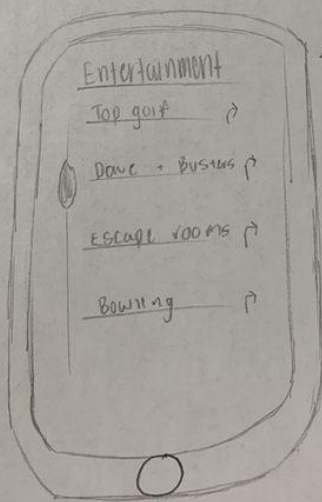 Entertainment
Top golf
Dave + Busters
Escape rooms
Bowling